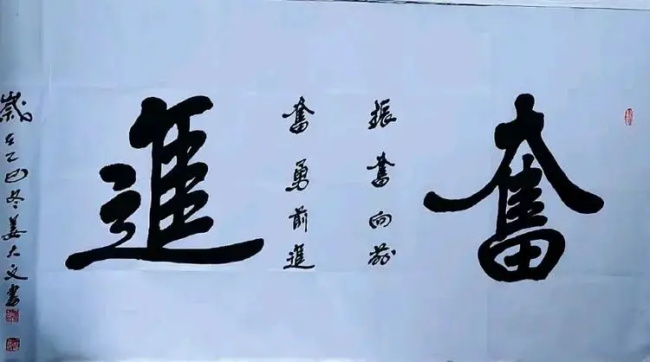 奮
振奮向前
奮勇前進
進
歲在乙巳冬姜大文書